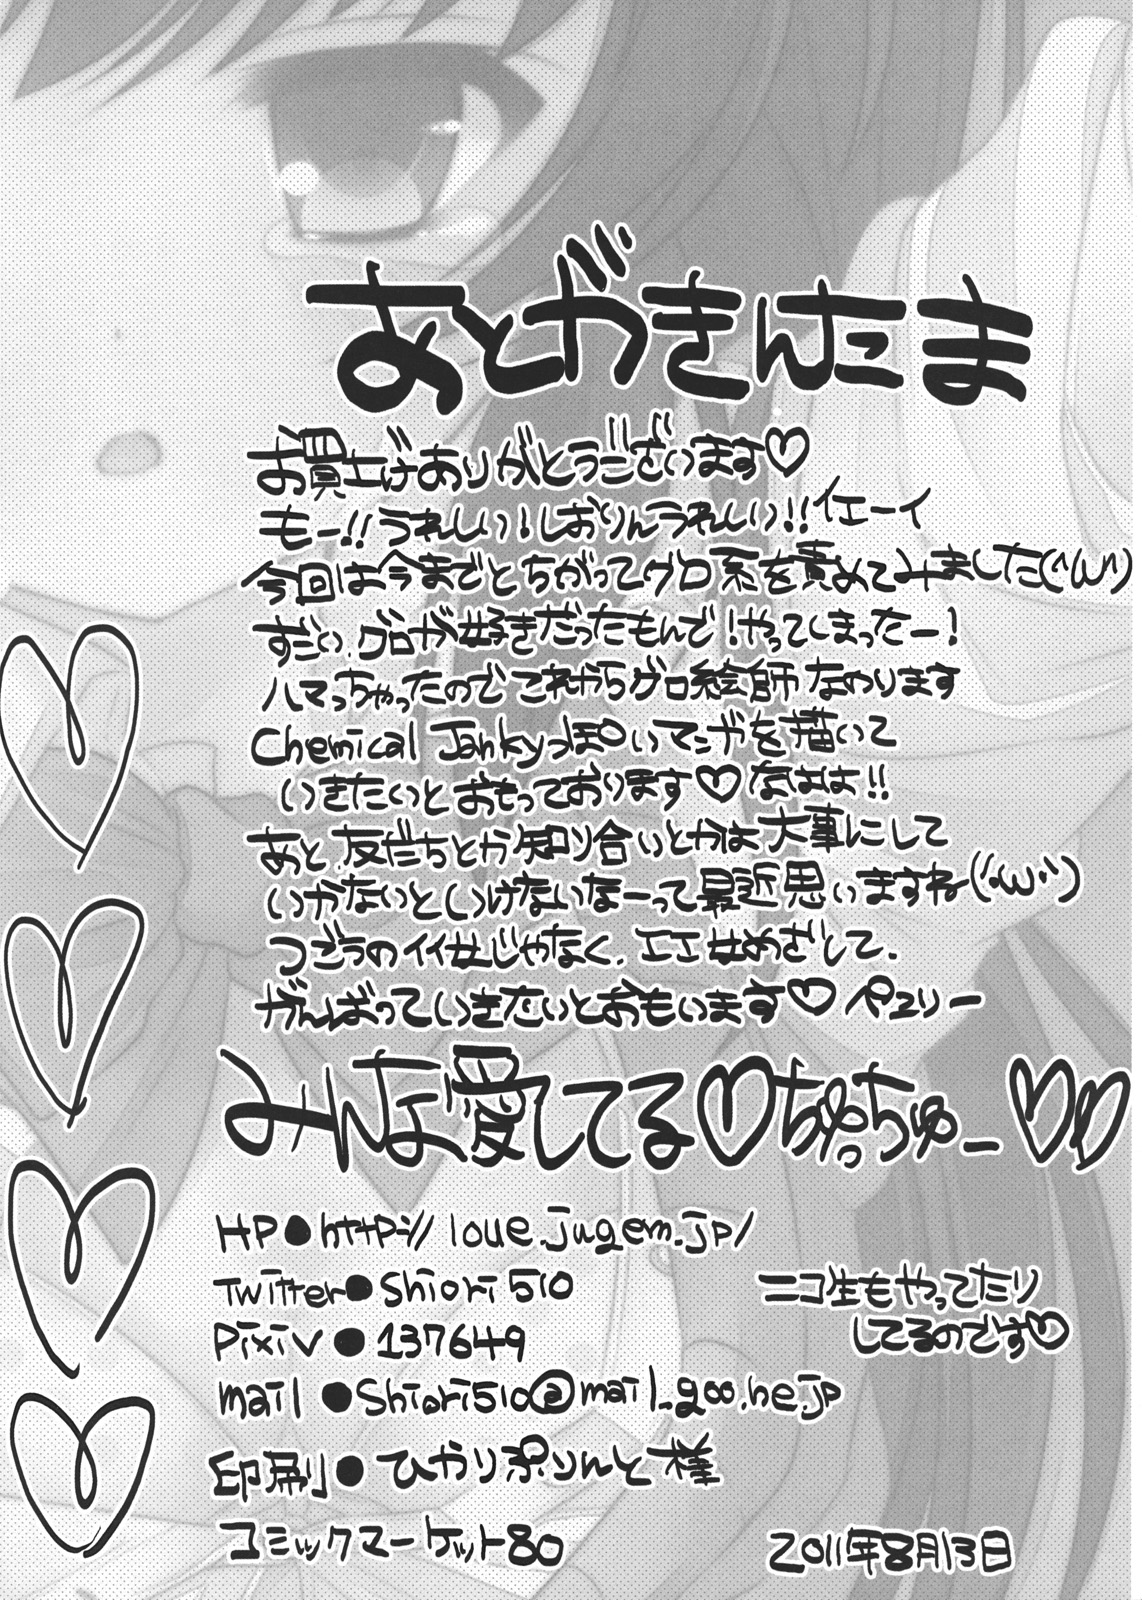 あとがきんたま
お買上げありがとうございます♡
もー!!うれしい!しおりんうれしい!!イエーイ
今回は今までとちがってグロ系を責めてみました(´・ω・`)
ずだい、グロが好きだったもんで!やってしまったー!
ハマっちゃったのでこれからグロ絵師なのります
Chemical Jankyっぽいマンガを描いて
いきたいとおもっております♡なはは!!
あと、友だちとか知り合いとかは大事にして
いかないといけないなーって最近思いますね(´・ω・`)
つごうのイイ女じゃなく、エエ女めざして、
がんばっていきたいとおもいます♡ペエリー
みんな愛してる♡ちゅっちゅー♡♡
HP●http://loue.jugem.jp/
Twitter●Shiori510
Pixiv●137649
ニコ生もやってたり
してるのです♡
mail●Shiori510@mail.goo.ne.jp
印刷●ひかりぷりんと様
コミックマーケット80
2011年8月13日